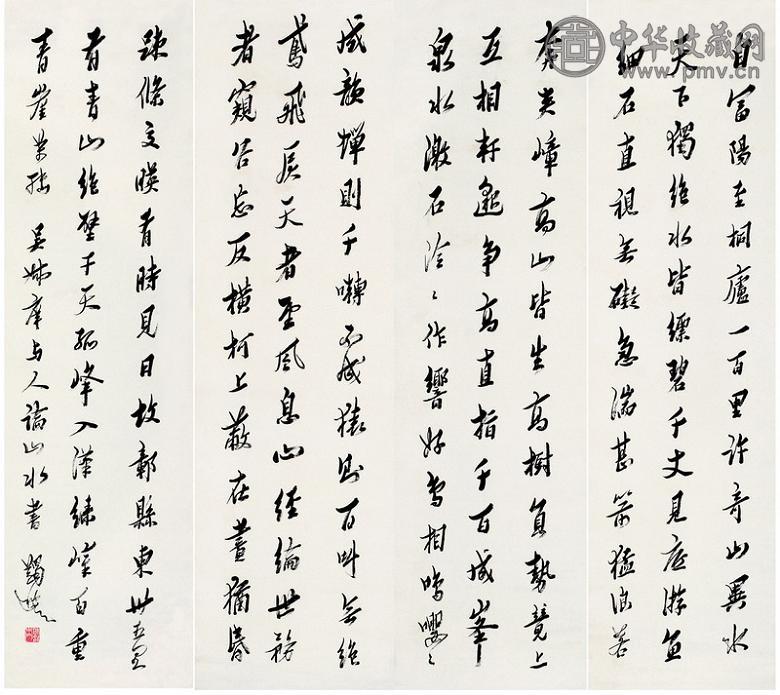 中华收藏网
www.pmv.cn
自富陽至桐廬一百里許奇山異水
天下獨絕水皆縹碧千丈見底游魚
細石直視無礙急湍甚箭猛浪若
奔夾嶂高山皆生高樹負勢競上
互相軒邈爭高直指千百成峯
泉水激石泠〻作響好鳥相鳴嚶〻
成韻蟬則千囀不猿則百叫無絕
鳶飛戾天者望風息心經綸世務
者窺谷忘反橫柯上蔽在晝猶昏
疎條交暎有時見日故鄣縣東卅五里
有青山絕壁干天孤峰入漢綠嶂百重
青崖萬轉 吳叔庠与人論山水書